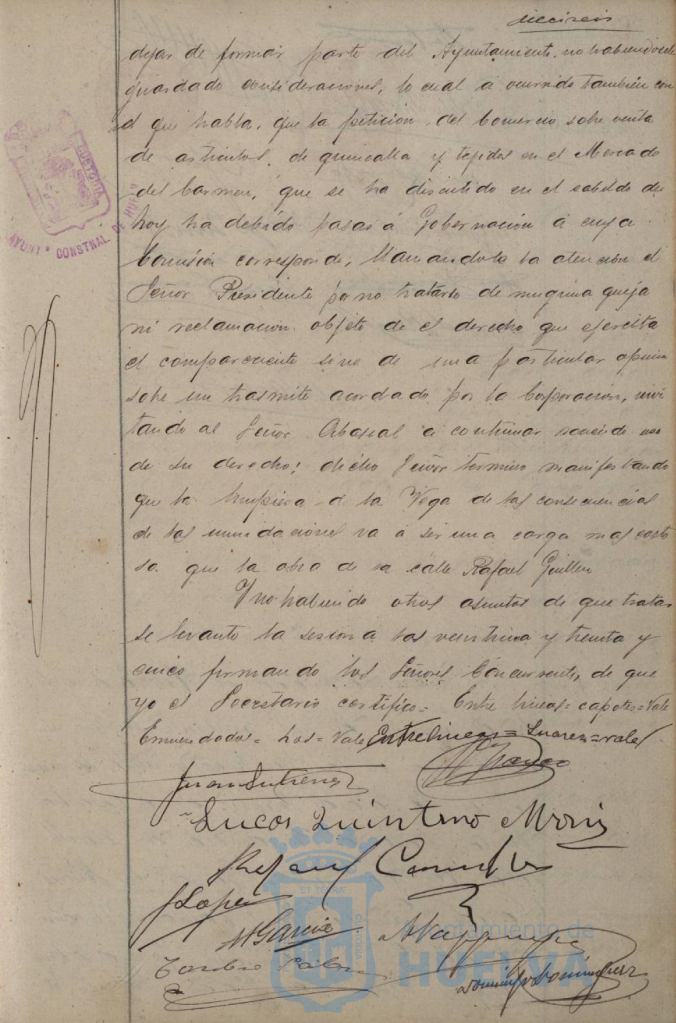 dieciseis
dejar de formar parte del Ayuntamiento, no habiéndosele
guardado consideraciones, lo cual á ocurrido también con
el que habla, que la petición del Comercio sobre venta
de articulos de quincalla y tegidos en el Mercado
del Carmen, que se ha discutido en el cabildo de
hoy ha debido pasar á Gobernación á cuya
Comisión corresponde, llamandole la atención el
Señor Presidente por no tratarse de ninguna queja
ni reclamación objeto de el derecho que ejercita
el compareciente sino de una particular opinion
sobre un trasmite acordado por la Corporación, invi
tando al Señor Abascal á continuar haciendo uso
de su derecho: dicho Señor termino manifestando
que la limpieza á la Vega de las consecuencias
de las inundaciones va á ser una carga mas costo
sa que la obra de la calle Rafael Guillen
Y no habiendo otros asuntos de que tratar
se levanto la sesion a las veintiuna y treinta y
cinco firmando los Señores Concurrentes, de que
yo el Secretario certifico= Entre lineas= capotes= Vale
Enmendados= los= Vale Entrelineas= Suarez= vale
Juan Gutierrez
Lucos Quintero
Rafael
J Lopez
M Garcia
Domingo Dominguez
CUSTODIA
AYUNT° CONSTNAL DE HUELVA
Ayuntamiento de
HUELVA